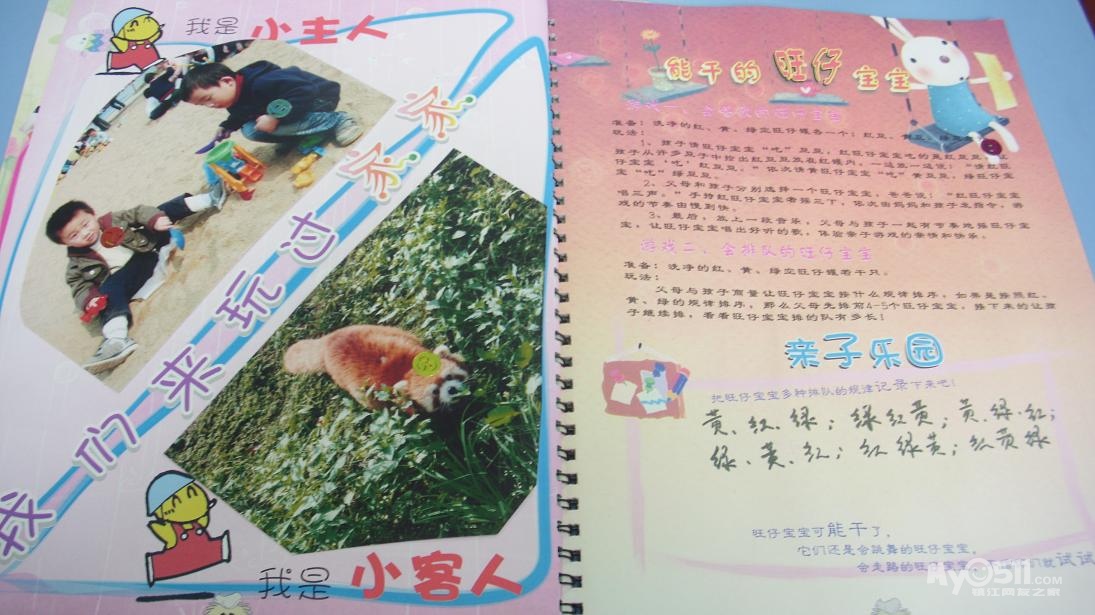 我是 小主人
我们来玩过家家
我是 小客人
能干的 旺仔 宝宝
准备：洗净的红、黄、绿空旺仔罐各一个；红豆、黄豆、绿豆
玩法：
1、孩子请旺仔宝宝“吃”豆豆，红旺仔宝宝吃的是红豆豆，让
孩子从许多豆子中挖出红豆豆放在红罐内，一边放一边说：“请红旺
仔宝宝‘吃’红豆豆。”依次请黄旺仔宝宝“吃”黄豆豆，绿旺仔宝
宝“吃”绿豆豆。
2、父母和孩子分别选择一个旺仔宝宝，爸爸说：“红旺仔宝宝
唱三声。”手持红旺仔宝宝者摇三下，依次由妈妈和孩子发指令，游
戏的节奏由慢到快。
3、最后，放上一段音乐，父母与孩子一起有节奏地摇旺仔宝
宝，让旺仔宝宝唱出好听的歌，体验亲子游戏的亲情和快乐。
游戏二、会排队的旺仔宝宝
准备：洗净的红、黄、绿空旺仔罐若干只。
玩法：
父母与孩子商量让旺仔宝宝按什么规律排序，如果是按照红、
黄、绿的规律排序，那么父母先排前4-5个旺仔宝宝，接下来的让孩
子继续排，看看旺仔宝宝排的队有多长！
亲子乐园
把旺仔宝宝多种排队的规律记录下来吧！
黄、红、绿；绿红黄；黄、绿、红；
绿、黄、红；红绿黄；红黄绿
旺仔宝宝可能干了，
它们还是会跳舞的旺仔宝宝，
会走路的旺仔宝宝，
们就试试
.COM
镇江网友之家